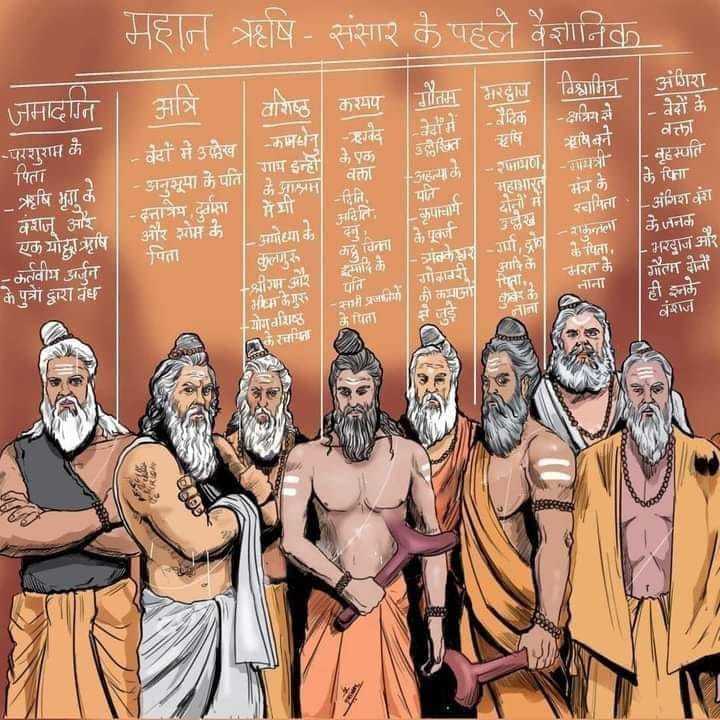 महान ऋषि - संसार के पहले वैज्ञानिक
जमादग्नि
-परशुराम के
पिता
- ऋषि भृगु के
वंशज और
एक योद्धा ऋषि
- कर्तवीय अर्जुन
के पुत्रों द्वारा वध
अत्रि
- वेदों में उल्लेख
- अनुसूया के पति
- दत्तात्रेय, दुर्वासा
और सोम के
पिता
वशिष्ठ
- कामधेनु
गाय इन्हीं
के आश्रम
में थी
- अयोध्या के
कुलगुरु
- श्रीराम और
भीष्म के गुरु
- योग वशिष्ठ
के रचयिता
कश्यप
- ऋग्वेद
के एक
वक्ता
- दिति,
अदिति,
दनु,
कद्रु, विनता
इत्यादि के
पति
- सभी प्रजातियों
के पिता
गौतम
- वेदों में
उल्लेखित
- अहल्या के
पति
- कृपाचार्य
के पूर्वज
- त्र्यंबकेश्वर
गोदावरी
की कथाओं
से जुड़े
भरद्वाज
- वैदिक
ऋषि
- रामायण,
महाभारत
दोनों में
उल्लेख
- गर्ग, द्रोण
आदि के
पिता,
कुबेर के
नाना
विश्वामित्र
- क्षत्रिय से
ऋषि बने
- गायत्री
मंत्र के
रचयिता
- शकुन्तला
के पिता,
भरत के
नाना
अंगिरा
- वेदों के
वक्ता
- बृहस्पति
के पिता
- अंगिरा वंश
के जनक
- भरद्वाज और
गौतम दोनों
ही इनके
वंशज